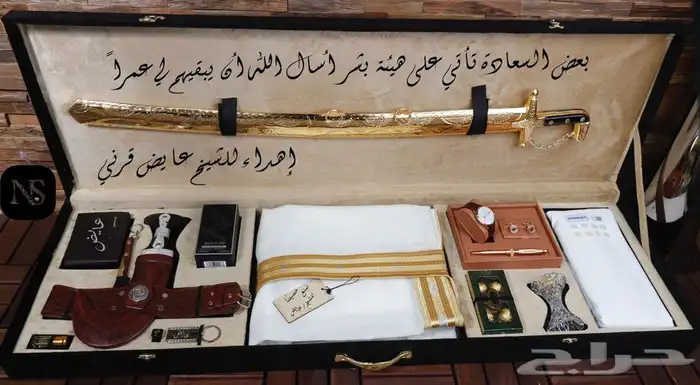 بعض السعادة تأتي على هيئة بشر أسال الله أن يبقيهم لي عمراً
إهداء للشيخ عايض قرني
NS
عايض
صنع خصيصاً
حراج